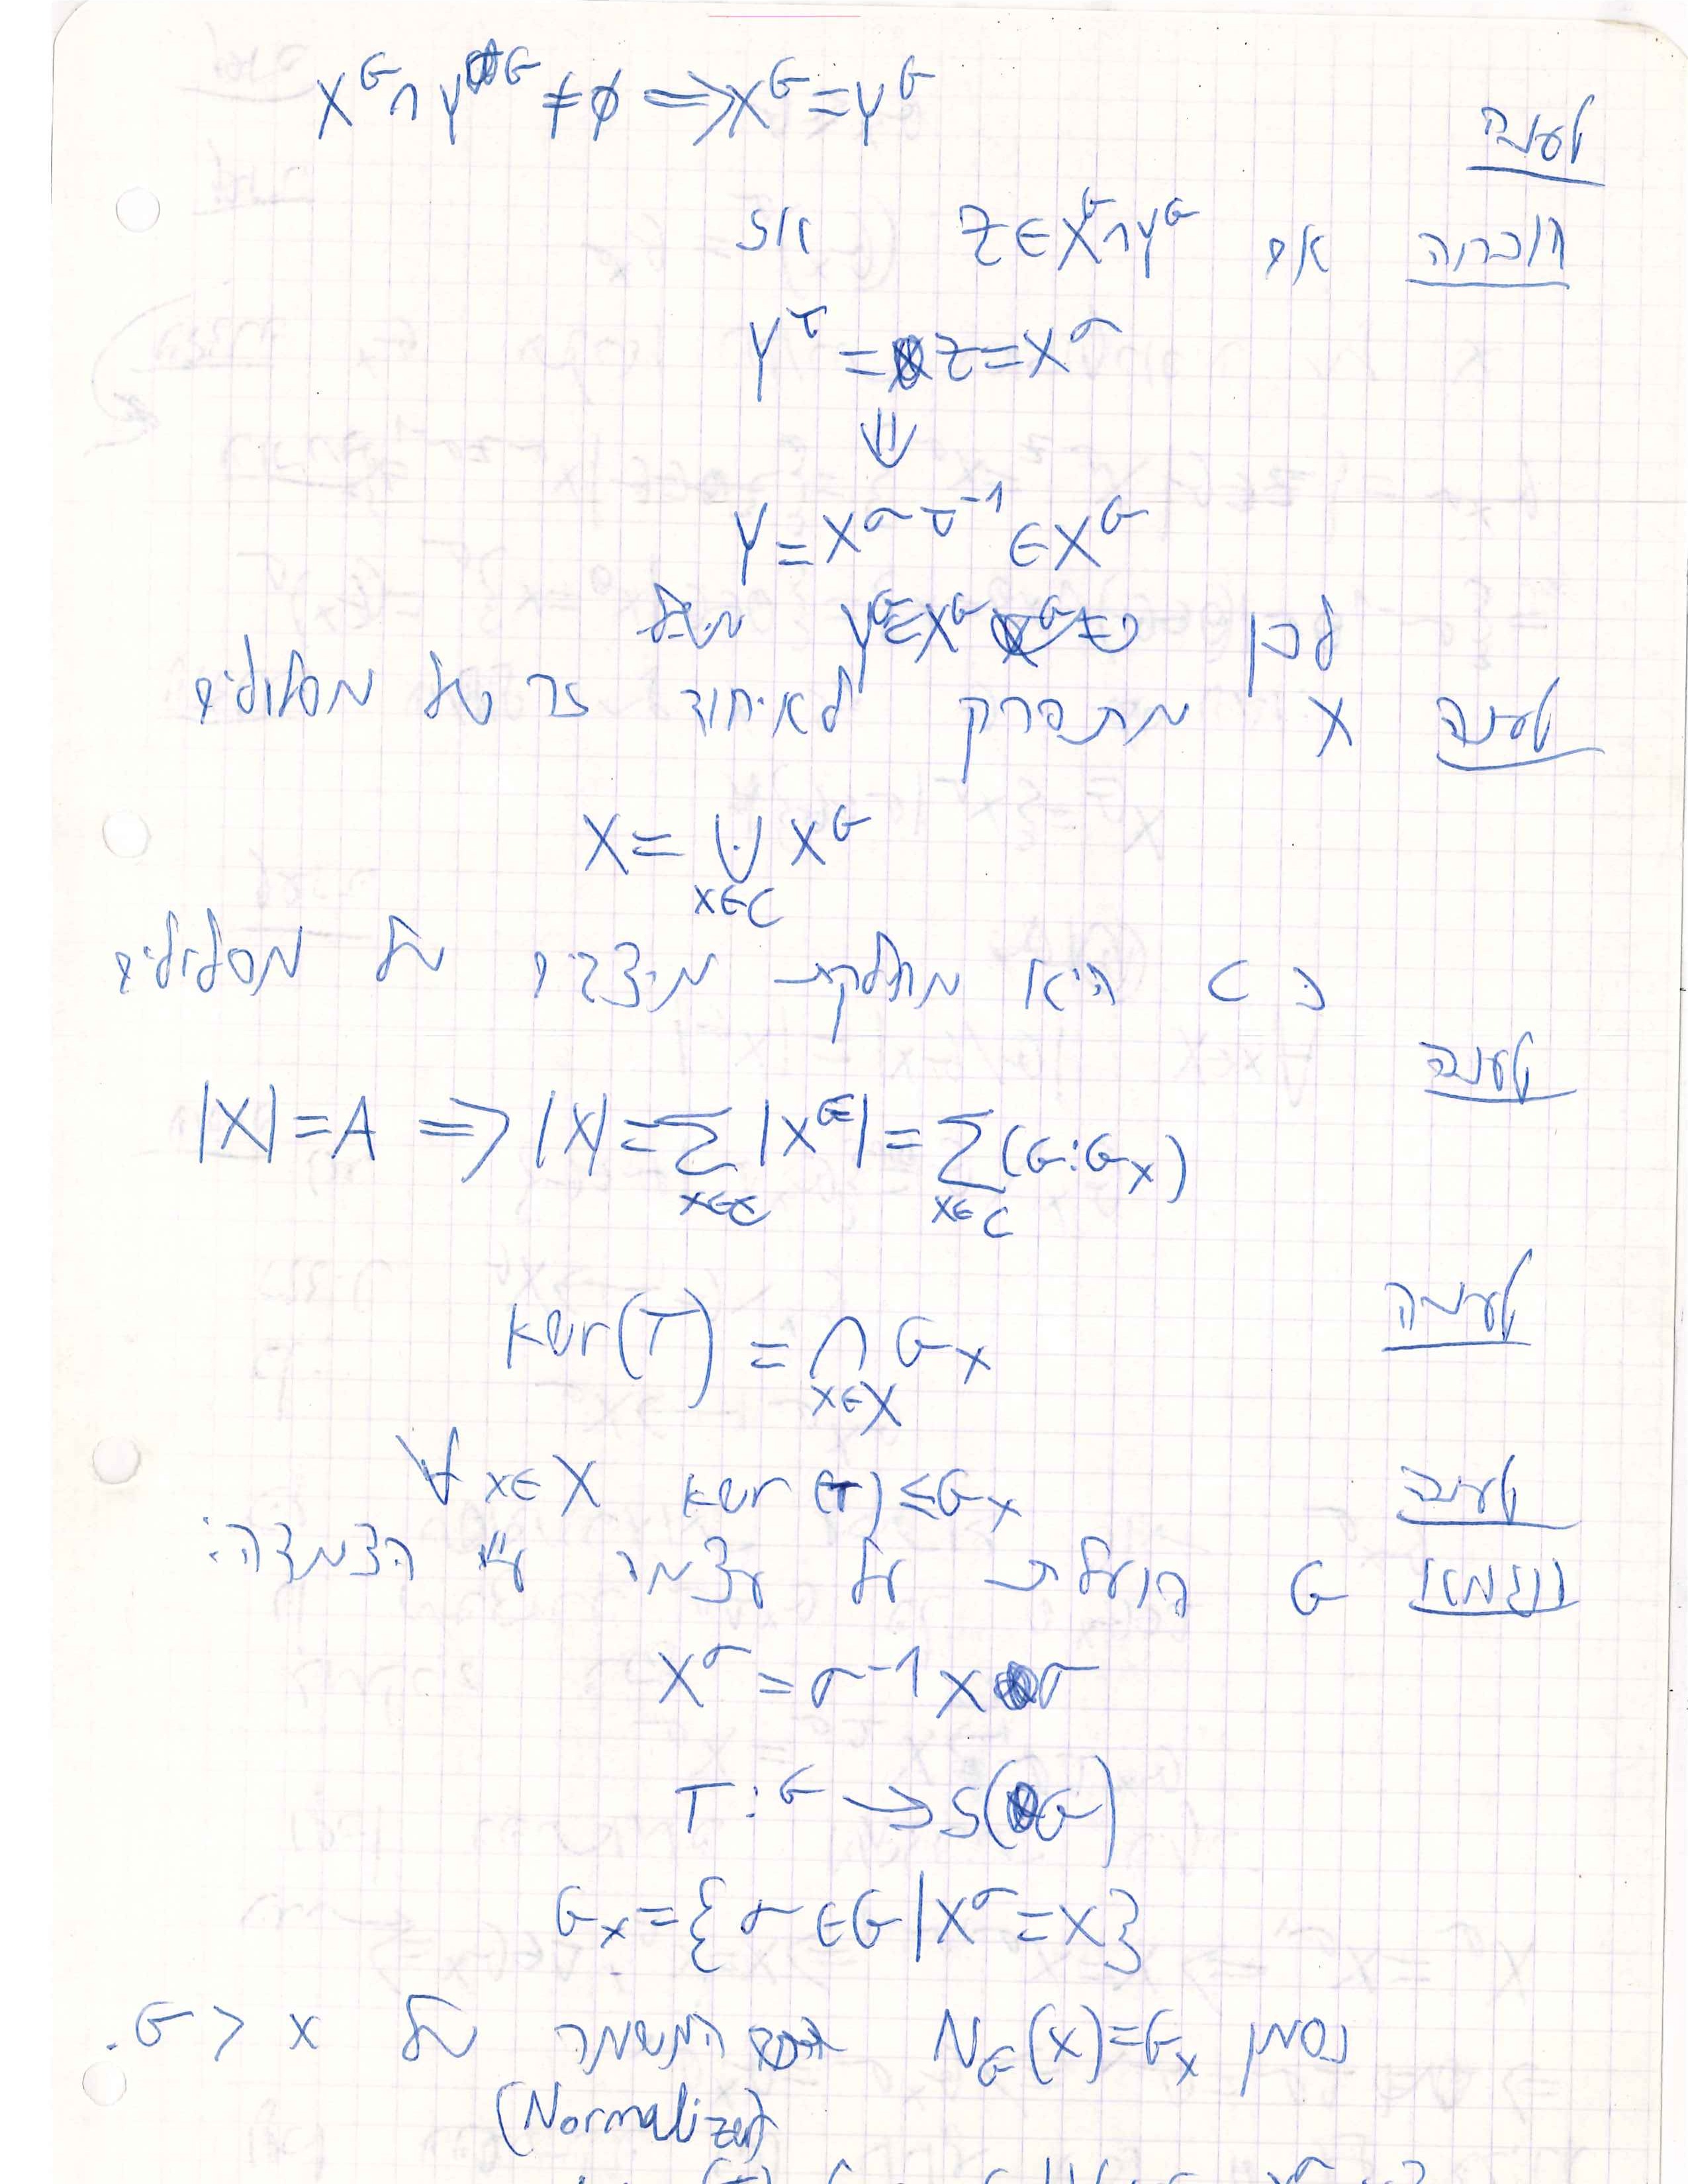 טענה x^G ∩ y^G ≠ ∅ ⟹ x^G = y^G
הוכחה אם z ∈ x^G ∩ y^G אז
y^τ = z = x^σ
⇓
y = x^{στ^{-1}} ∈ x^G
לכן y^G ⊆ x^G
טענה X מתפרק לאיחוד זר של מסלולים
X = ⋃· x^G
x∈C
כש C היא מחלקת מיצגים של מסלולים
טענה
|X| = A ⟹ |X| = ∑_{x∈C} |x^G| = ∑_{x∈C} (G:G_x)
טענה
ker(T) = ⋂_{x∈X} G_x
טענה ∀x∈X ker(T) ≤ G_x
דוגמאו G פועלת על עצמה ע"י הצמדה:
x^σ = σ^{-1}xσ
T: G → S(G)
G_x = {σ∈G | x^σ = x}
נסמן N_G(x) = G_x המשמר של x ב G.
(Normalizer)